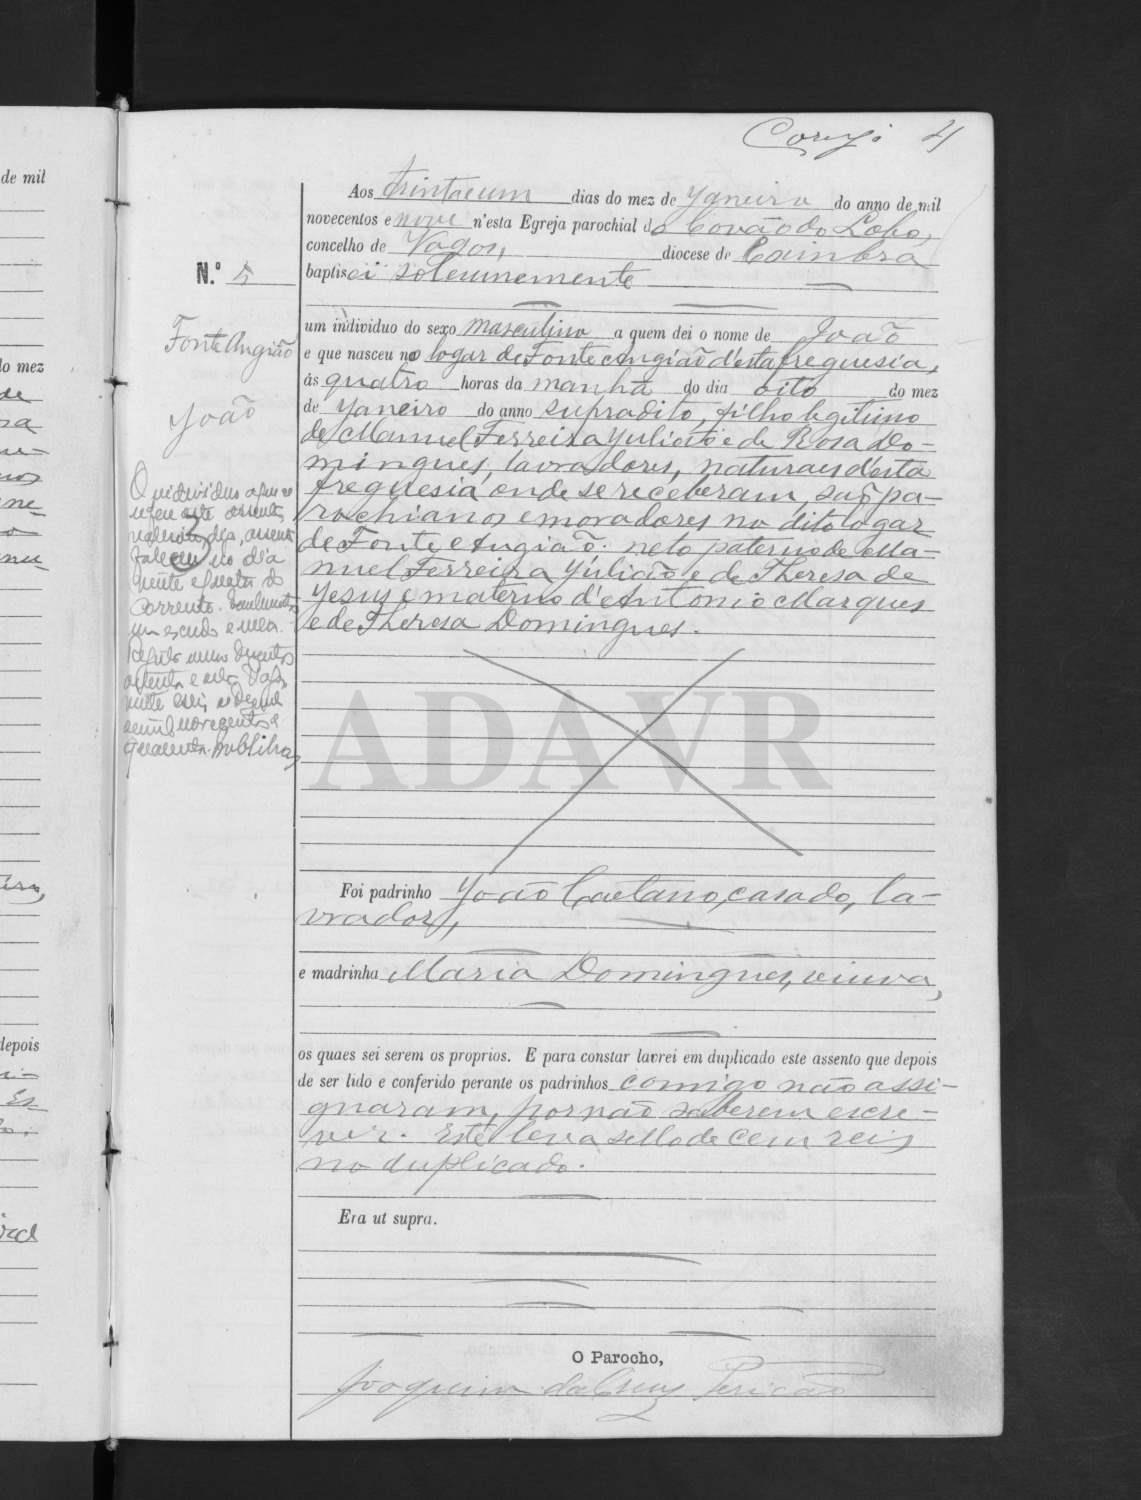 4
de mil
do mez
depois
Aos trinta e um dias do mez de Janeiro do anno de mil
novecentos e nove n'esta Egreja parochial do Covão do Lobo,
concelho de Vagos, diocese de Coimbra
N.º 5
baptisei solemnemente
um individuo do sexo masculino a quem dei o nome de João
Fonte Angião
e que nasceu no logar de Fonte Angião d'esta freguesia,
ás quatro horas da manhã do dia oito do mez
João
de Janeiro do anno supradito, filho legitimo
de Manuel Ferreira Julião e de Rosa Do-
mingues, lavradores, naturaes d'esta
freguesia onde se receberam, são pa-
rochianos e moradores no dito logar
de Fonte Angião: neto paterno de Ma-
nuel Ferreira Julião e de Theresa de
Jesus e materno d'Antonio Marques
e de Theresa Domingues.
O individuo a que se
refere este assento
faleceu no dia
corrente.
um escudo e
mil novecentos e
quarenta.
ADAVR
Foi padrinho João Caetano, casado, la-
vrador,
e madrinha Maria Domingues, viuva,
os quaes sei serem os proprios. E para constar lavrei em duplicado este assento que depois
de ser lido e conferido perante os padrinhos comigo não assi-
gnaram, por não saberem escre-
ver. Este leva sello de cem reis
no duplicado.
Era ut supra.
O Parocho,
Joaquim da Cruz Pericão